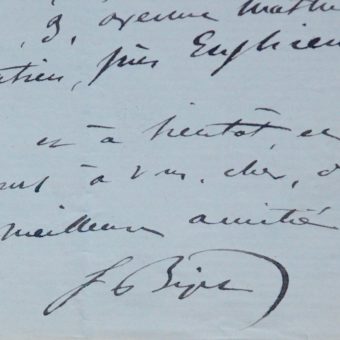 3, avenue Mathi
près Enghien
et à bientôt, et
à vous, cher,
meilleure amitié